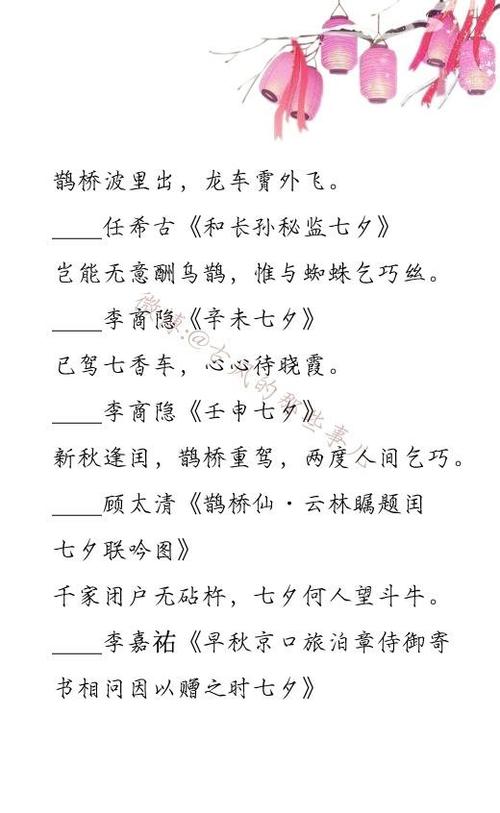 鹊桥波里出，龙车霄外飞。
____任希古《和长孙秘监七夕》
岂能无意酬乌鹊，惟与蜘蛛乞巧丝。
____李商隐《辛未七夕》
已驾七香车，心心待晓霞。
____李商隐《壬申七夕》
新秋逢闰，鹊桥重驾，两度人间乞巧。
____顾太清《鹊桥仙·云林瞩题闰
七夕联吟图》
千家闭户无砧杵，七夕何人望斗牛。
____李嘉祐《早秋京口旅泊章侍御寄
书相问因以赠之时七夕》
微博:@古风的那些事儿